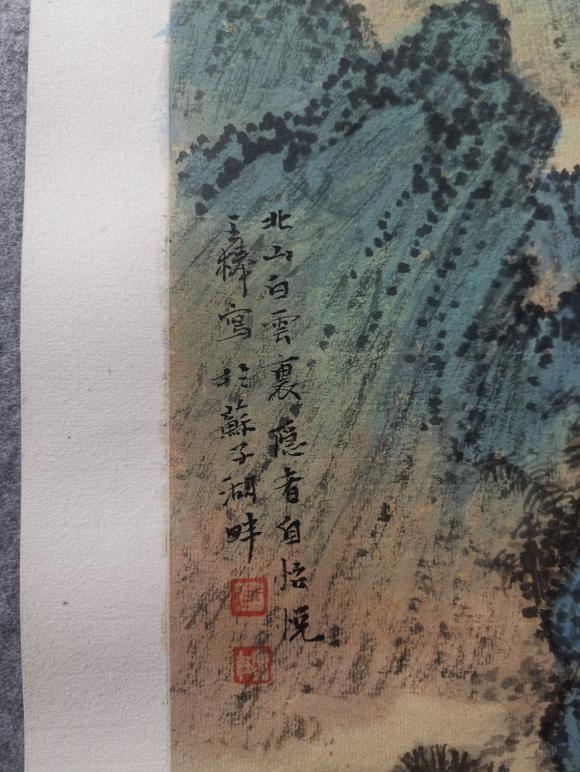 北山白雲裏隱者自怡悅
王樺寫於蘇子湖畔